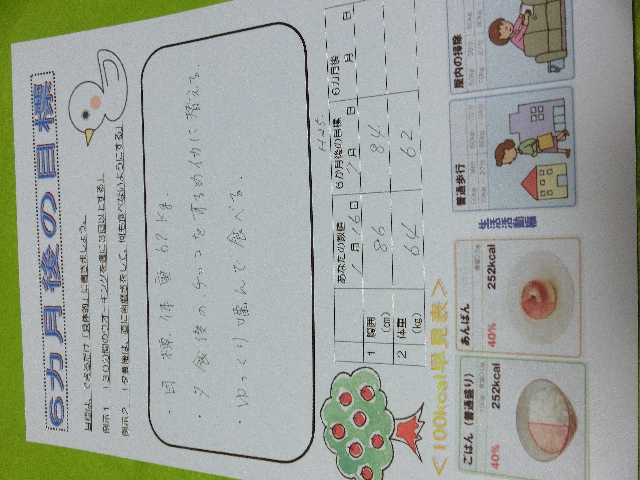 6カ月後の目標
目標は、できるだけ「具体的」に書きましょう。
例示1 「30分間のウオーキングを週に3回以上する」
例示2 「夕食後は、直に歯磨きをして、何も食べないようにする」
・目標体重62kg.
・夕食後の、チョコをするめイカに替える.
・ゆっくり噛んで食べる.
H25
あなたの数値 6か月後の目標 6カ月後
1月16日 7月 日 月 日
1 腹囲(cm) 86 84
2 体重(kg) 64 62
<100kcal早見表>
生活活動編
ごはん(普通盛り)
252kcal
40%
あんぱん
252kcal
40%
普通歩行
屋内の掃除